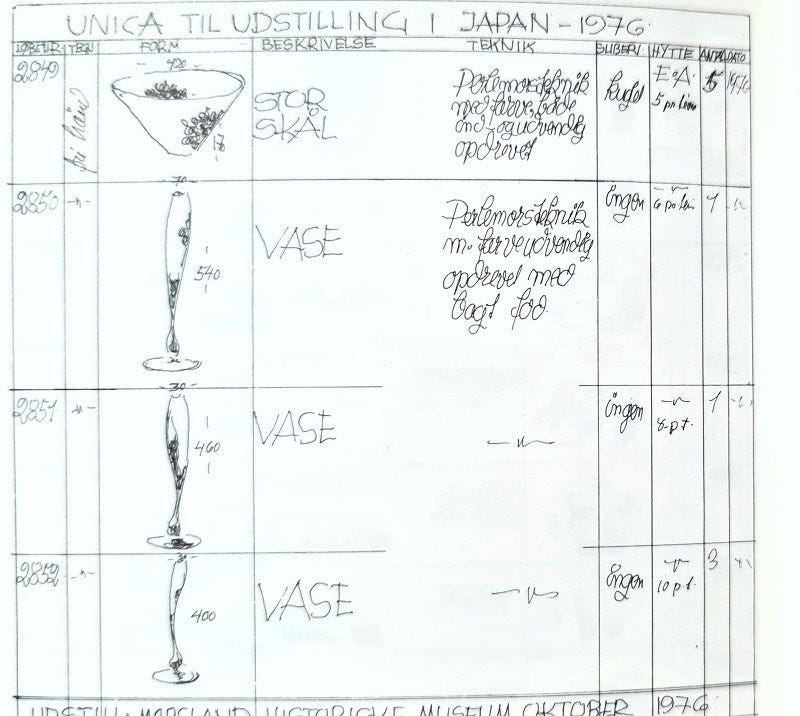 UNICA TIL UDSTILLING I JAPAN – 1976.
LØBENR TEGN FORM BESKRIVELSE TEKNIK SLIBERI HYTTE ANTAL DATO
2849 fri hånd 420 178 STOR SKÅL
Perlemorsteknik
med farve både
ind- og udvendig
opdrevet
Kugel E.A. 5 pr. time 5 1976
2850 –"– 70 540 VASE
Perlemorsteknik
m. farve udvendig
opdrevet med
bagt fod.
Ingen –"– 6 pr. time 1 –"–
2851 –"– 30 460 VASE –"– Ingen –"– 8 p.t. 1 –"–
2852 –"– 30 400 VASE –"– Ingen –"– 10 p.t. 3 –"–
HISTORISKE MUSEUM OKTOBER 1976